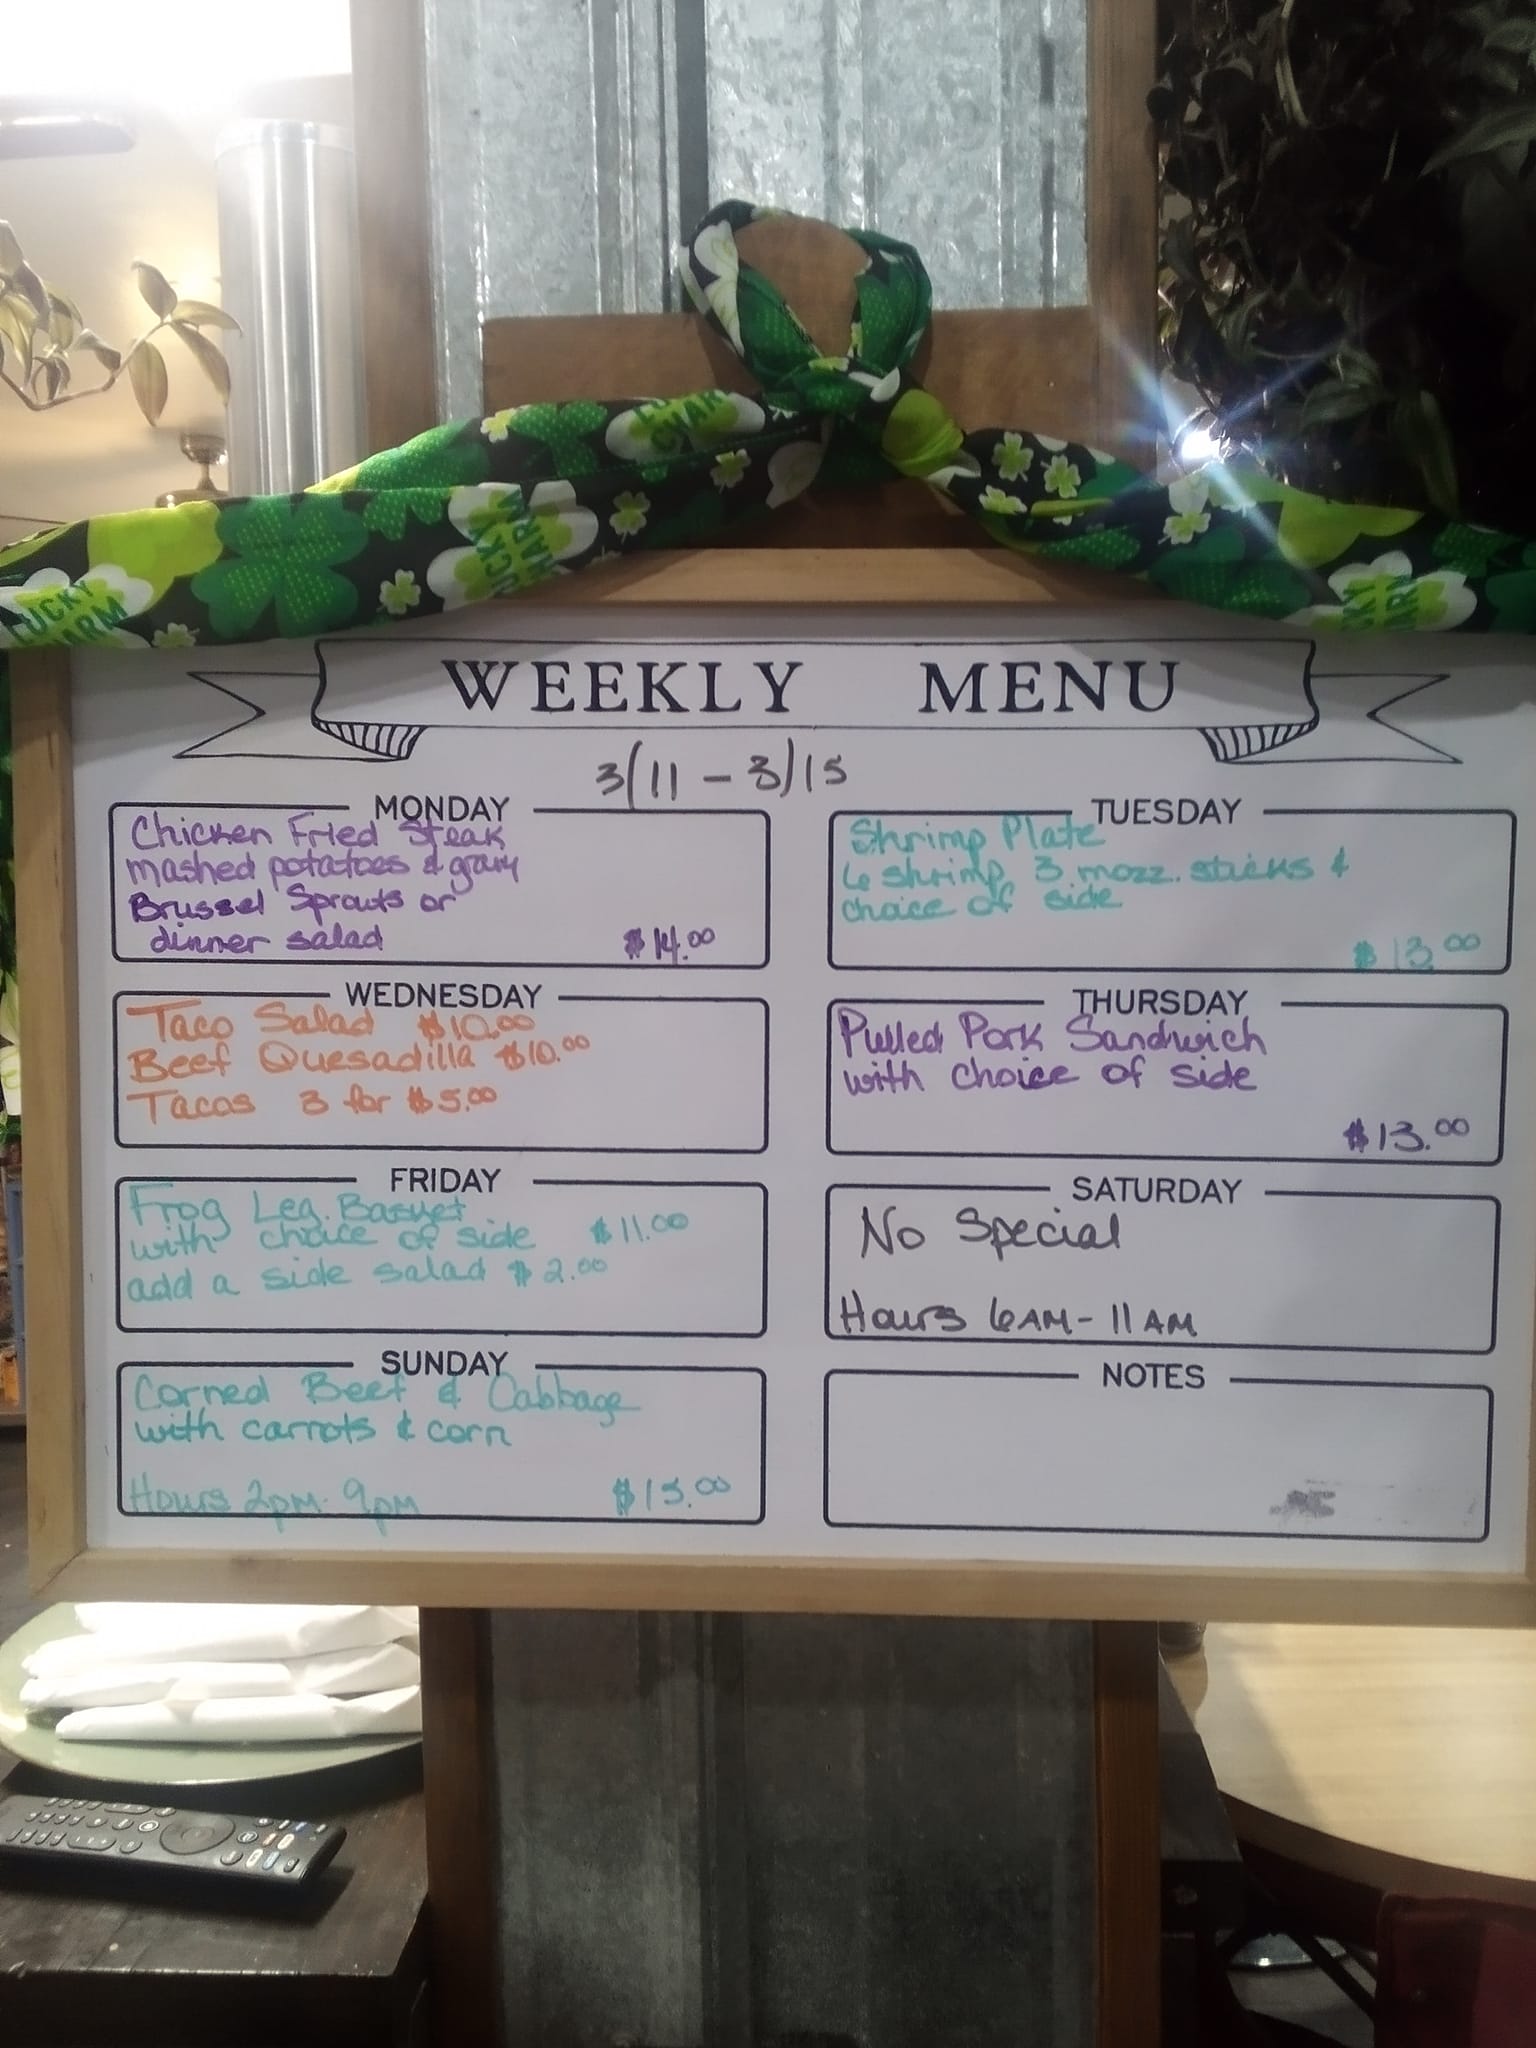 LUCKY CHARM
LUCKY CHARM
WEEKLY MENU
3/11 - 3/15
MONDAY
Chicken Fried Steak
mashed potatoes & gravy
Brussel Sprouts or
dinner salad $14.00
TUESDAY
Shrimp Plate
6 shrimp, 3 mozz. sticks &
choice of side
$13.00
WEDNESDAY
Taco Salad $10.00
Beef Quesadilla $10.00
Tacos 3 for $5.00
THURSDAY
Pulled Pork Sandwich
with choice of side
$13.00
FRIDAY
Frog Leg Basket
with choice of side $11.00
add a side salad $2.00
SATURDAY
No Special
Hours 6AM - 11AM
SUNDAY
Corned Beef & Cabbage
with carrots & corn
Hours 2pm - 9pm $15.00
NOTES